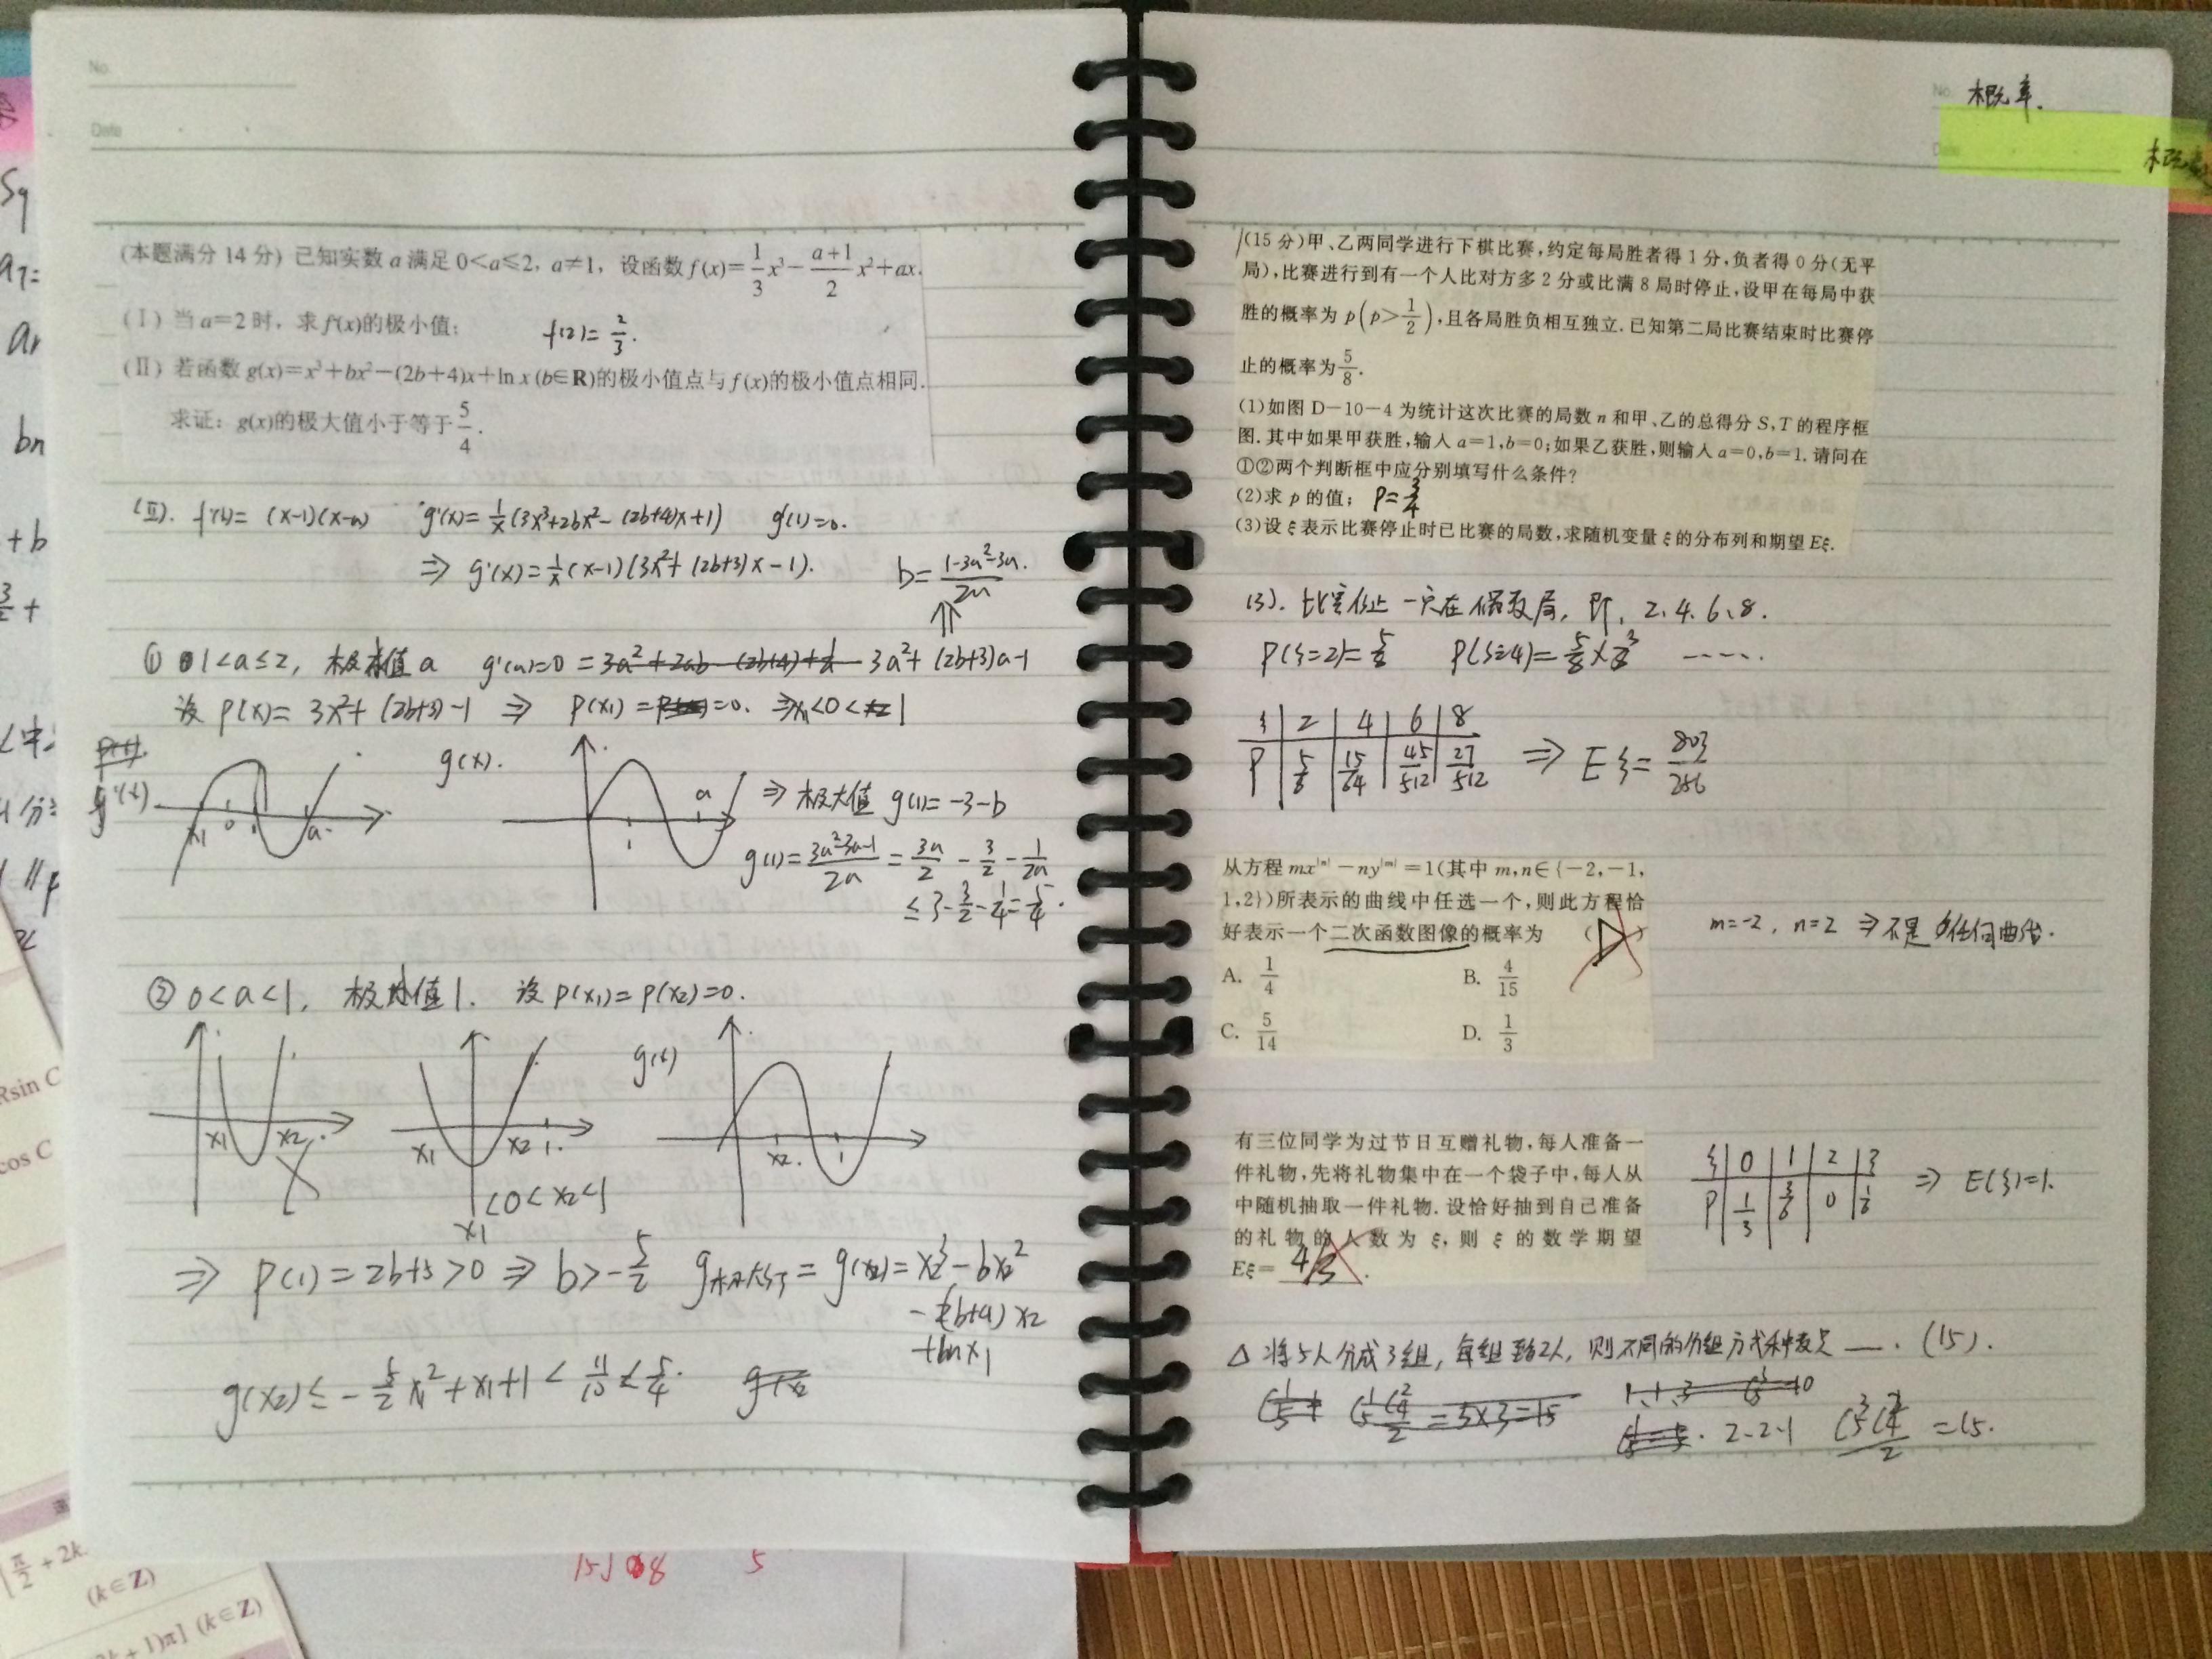 No.
Date
(本题满分 14 分) 已知实数 a 满足 0<a≤2, a≠1, 设函数 f(x)=\frac{1}{3}x³-\frac{a+1}{2}x²+ax.
(Ⅰ) 当 a=2 时, 求 f(x)的极小值; f(2)=\frac{2}{3}.
(Ⅱ) 若函数 g(x)=x³+bx²-(2b+4)x+ln x (b∈R)的极小值点与 f(x)的极小值点相同.
求证: g(x)的极大值小于等于\frac{5}{4}.
(Ⅱ). f'(x)= (x-1)(x-a) g'(x)=\frac{1}{x}(3x³+2bx²-(2b+4)x+1) g'(1)=0.
⇒ g'(x)=\frac{1}{x}(x-1)(3x²+(2b+3)x-1). b=\frac{1-3a²-3a}{2a}.
① 1<a≤2, 极小值 a g'(a)=0 = 3a²+(2b+3)a-1
设 P(x)= 3x²+(2b+3)-1 ⇒ P(x1)=0. ⇒x1<0<1
g'(x)
x1 0 1 a
g(x).
1 a
⇒ 极大值 g(1)=-3-b
g(1)=\frac{3a²-3a-1}{2a}=\frac{3a}{2}-\frac{3}{2}-\frac{1}{2a}
≤3-\frac{3}{2}-\frac{1}{4}=\frac{5}{4}.
② 0<a<1, 极小值1. 设 P(x1)=P(x2)=0.
g(x)
x1 x2
x1 x2 1.
x2. 1
x1<0<x2<1
⇒ P(1)=2b+5>0 ⇒ b>-\frac{5}{2} g极大 = g(x2)=x2³-bx2²
-2(b+4)x2
+lnx1
g(x2)≤-\frac{5}{2}x1²+x1+1<\frac{11}{10}<\frac{5}{4}.
概率.
概率
(15 分)甲、乙两同学进行下棋比赛,约定每局胜者得 1 分,负者得 0 分(无平
局),比赛进行到有一个人比对方多 2 分或比满 8 局时停止,设甲在每局中获
胜的概率为 p(p>\frac{1}{2}),且各局胜负相互独立.已知第二局比赛结束时比赛停
止的概率为\frac{5}{8}.
(1)如图 D-10-4 为统计这次比赛的局数 n 和甲、乙的总得分 S,T 的程序框
图.其中如果甲获胜,输入 a=1,b=0;如果乙获胜,则输入 a=0,b=1.请问在
①②两个判断框中应分别填写什么条件?
(2)求 p 的值; P=\frac{3}{4}
(3)设 ξ 表示比赛停止时已比赛的局数,求随机变量 ξ 的分布列和期望 Eξ.
(3). 比赛停止一定在偶数局, 即, 2、4、6、8.
P(ξ=2)=\frac{5}{8} P(ξ=4)=\frac{5}{8}×\frac{3}{8} ……
ξ 2 4 6 8
P \frac{5}{8} \frac{15}{64} \frac{45}{512} \frac{27}{512} ⇒ Eξ=\frac{803}{256}
从方程 mx^{|n|}-ny^{|m|}=1(其中 m,n∈{-2,-1,
1,2})所表示的曲线中任选一个,则此方程恰
好表示一个二次函数图像的概率为 (D)
m=-2, n=2 ⇒不是任何曲线.
A. \frac{1}{4} B. \frac{4}{15}
C. \frac{5}{14} D. \frac{1}{3}
有三位同学为过节日互赠礼物,每人准备一
件礼物,先将礼物集中在一个袋子中,每人从
中随机抽取一件礼物.设恰好抽到自己准备
的礼物的人数为 ξ,则 ξ 的数学期望
Eξ= 4/3.
ξ 0 1 2 3
P \frac{1}{3} \frac{3}{6} 0 \frac{1}{6} ⇒ E(ξ)=1.
△ 将5人分成3组, 每组至多2人, 则不同的分组方式种数是 ——. (15).
2-2-1 \frac{C_5^3C_4^2}{2}=15.
Rsin C
cos C
\frac{π}{2}+2k
(k∈Z)
+1)π] (k∈Z)